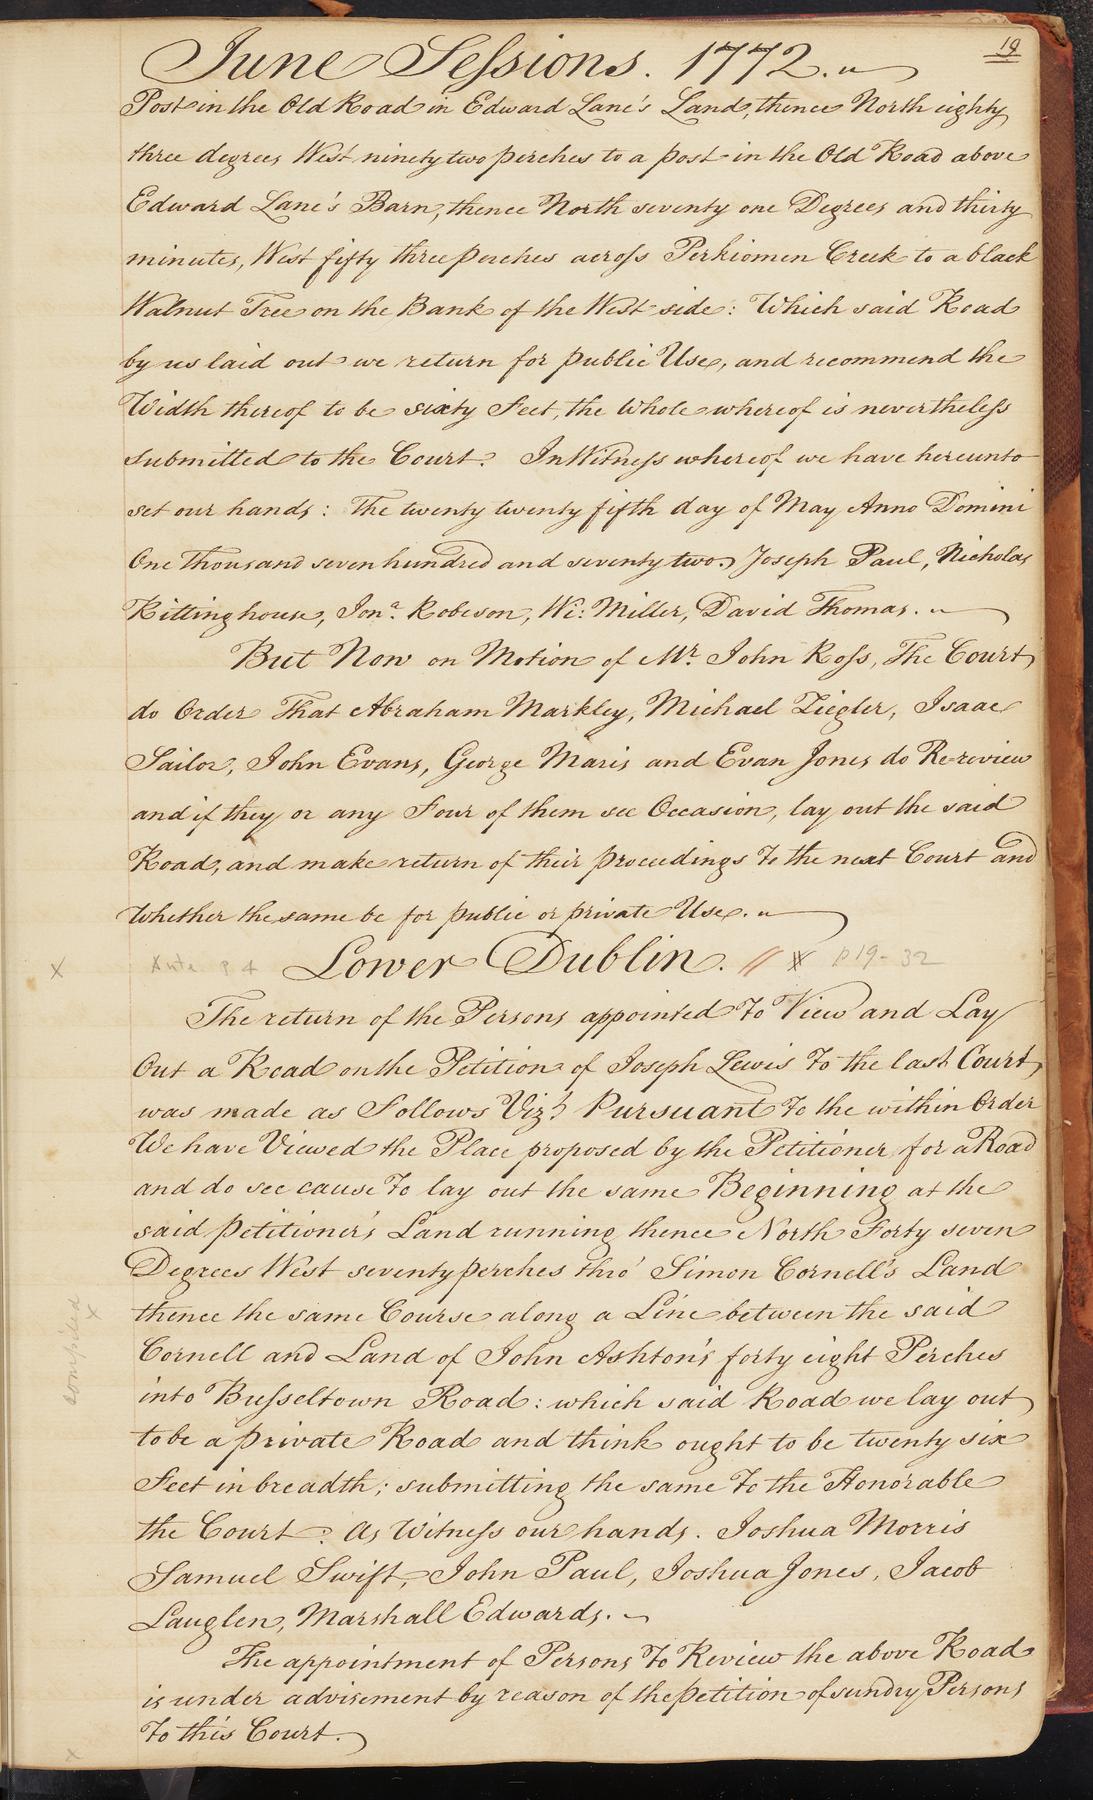 19
June Sessions. 1772.
Post in the Old Road in Edward Lane's Land, thence North eighty
three degrees West ninety two perches to a post in the Old Road above
Edward Lane's Barn, thence North seventy one Degrees and thirty
minutes, West fifty three perches across Perkiomen Creek to a black
Walnut Tree on the Bank of the West side: Which said Road
by us laid out we return for public Use, and recommend the
Width thereof to be sixty Feet, the Whole whereof is nevertheless
submitted to the Court. In Witness whereof we have hereunto
set our hands: The twenty twenty fifth day of May Anno Domini
One thousand seven hundred and seventy two. Joseph Paul, Nicholas
Rittinghouse, Jona. Robeson, Wi: Miller, David Thomas.
But Now on Motion of Mr. John Ross, The Court
do Order That Abraham Markley, Michael Ziegler, Isaac
Sailor, John Evans, George Maris and Evan Jones do Re=review
and if they or any Four of them see Occasion, lay out the said
Road, and make return of their proceedings To the next Court and
Whether the same be for public or private Use.
X Ante p 4 Lower Dublin. // X p 19-32
The return of the Persons appointed To View and Lay
Out a Road on the Petition of Joseph Lewis To the last Court,
was made as Follows Vizt. Pursuant To the within Order
We have Viewed the Place proposed by the Petitioner for a Road
and do see cause To lay out the same Beginning at the
said petitioner's Land running thence North Forty seven
Degrees West seventy perches thro' Simon Cornell's Land
thence the same Course along a Line between the said
Cornell and Land of John Ashton's forty eight Perches
into Busseltown Road: which said Road we lay out
to be a private Road and think ought to be twenty six
Feet in breadth; submitting the same To the Honorable
the Court. As Witness our hands. Joshua Morris
Samuel Swift, John Paul, Joshua Jones, Jacob
Lauglen, Marshall Edwards.
The appointment of Persons To Review the above Road
is under advisement by reason of the petition of sundry Persons
To this Court.
compiled
X
X